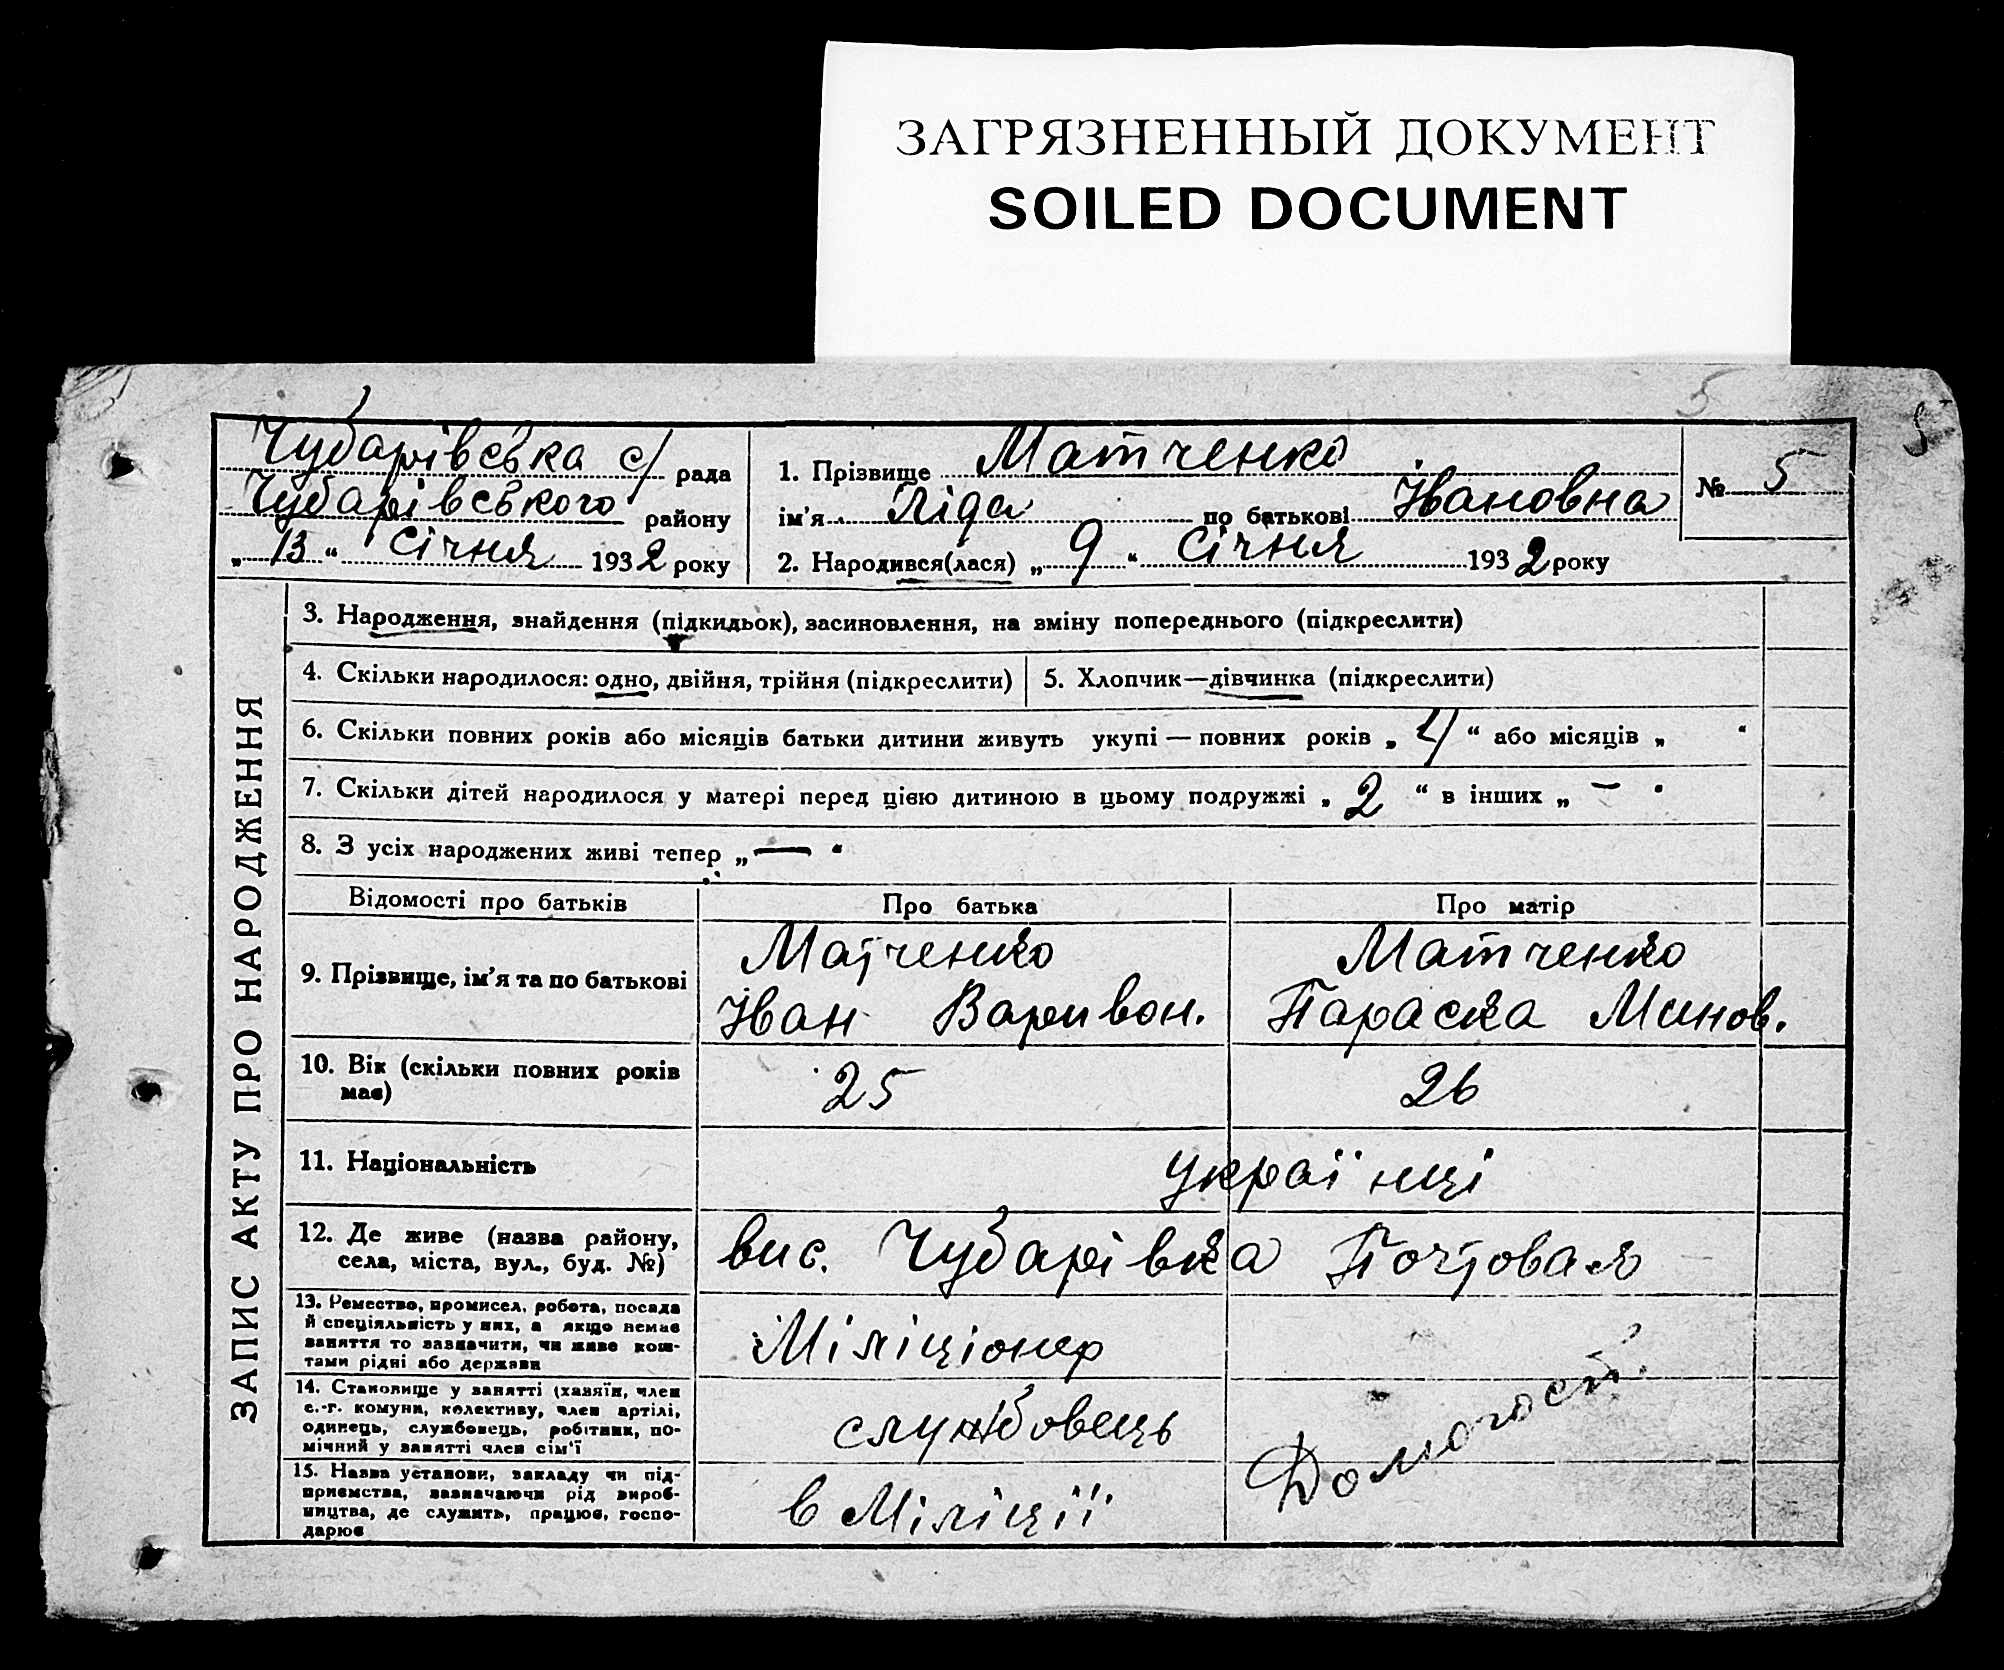 ЗАГРЯЗНЕННЫЙ ДОКУМЕНТ
SOILED DOCUMENT
5
5
Чубарівська с/ рада
Чубарівського району
„ 13 “ січня 1932 року
1. Прізвище Матченко
ім'я Ліда по батькові Івановна
2. Народився(лася) „ 9 “ січня 1932 року
№ 5
ЗАПИС АКТУ ПРО НАРОДЖЕННЯ
3. Народження, знайдення (підкидьок), засиновлення, на зміну попереднього (підкреслити)
4. Скільки народилося: одно, двійня, трійня (підкреслити)
5. Хлопчик—дівчинка (підкреслити)
6. Скільки повних років або місяців батьки дитини живуть укупі — повних років „ 4 “ або місяців „ “
7. Скільки дітей народилося у матері перед цією дитиною в цьому подружжі „ 2 “ в інших „ — “
8. З усіх народжених живі тепер „ — “
Відомості про батьків
Про батька
Про матір
9. Прізвище, ім'я та по батькові
Матченко
Іван Варивон.
Матченко
Параска Минов.
10. Вік (скільки повних років
має)
25
26
11. Національність
українці
12. Де живе (назва району,
села, міста, вул., буд. №)
вис. Чубарівка Почтовая
13. Ремество, промисел, робота, посада
й спеціяльність у них, а якщо немає
заняття то зазначити, чи живе кош-
тами рідні або держави
Міліціонер
14. Становище у занятті (хазяїн, член
с.-г. комуни, колективу, член артілі,
одинець, службовець, робітник, по-
мічний у занятті член сім'ї
службовець
15. Назва установи, закладу чи під-
приємства, зазначаючи рід вироб-
ництва, де служить, працює, госпо-
дарює
в Міліції
Домогосп.